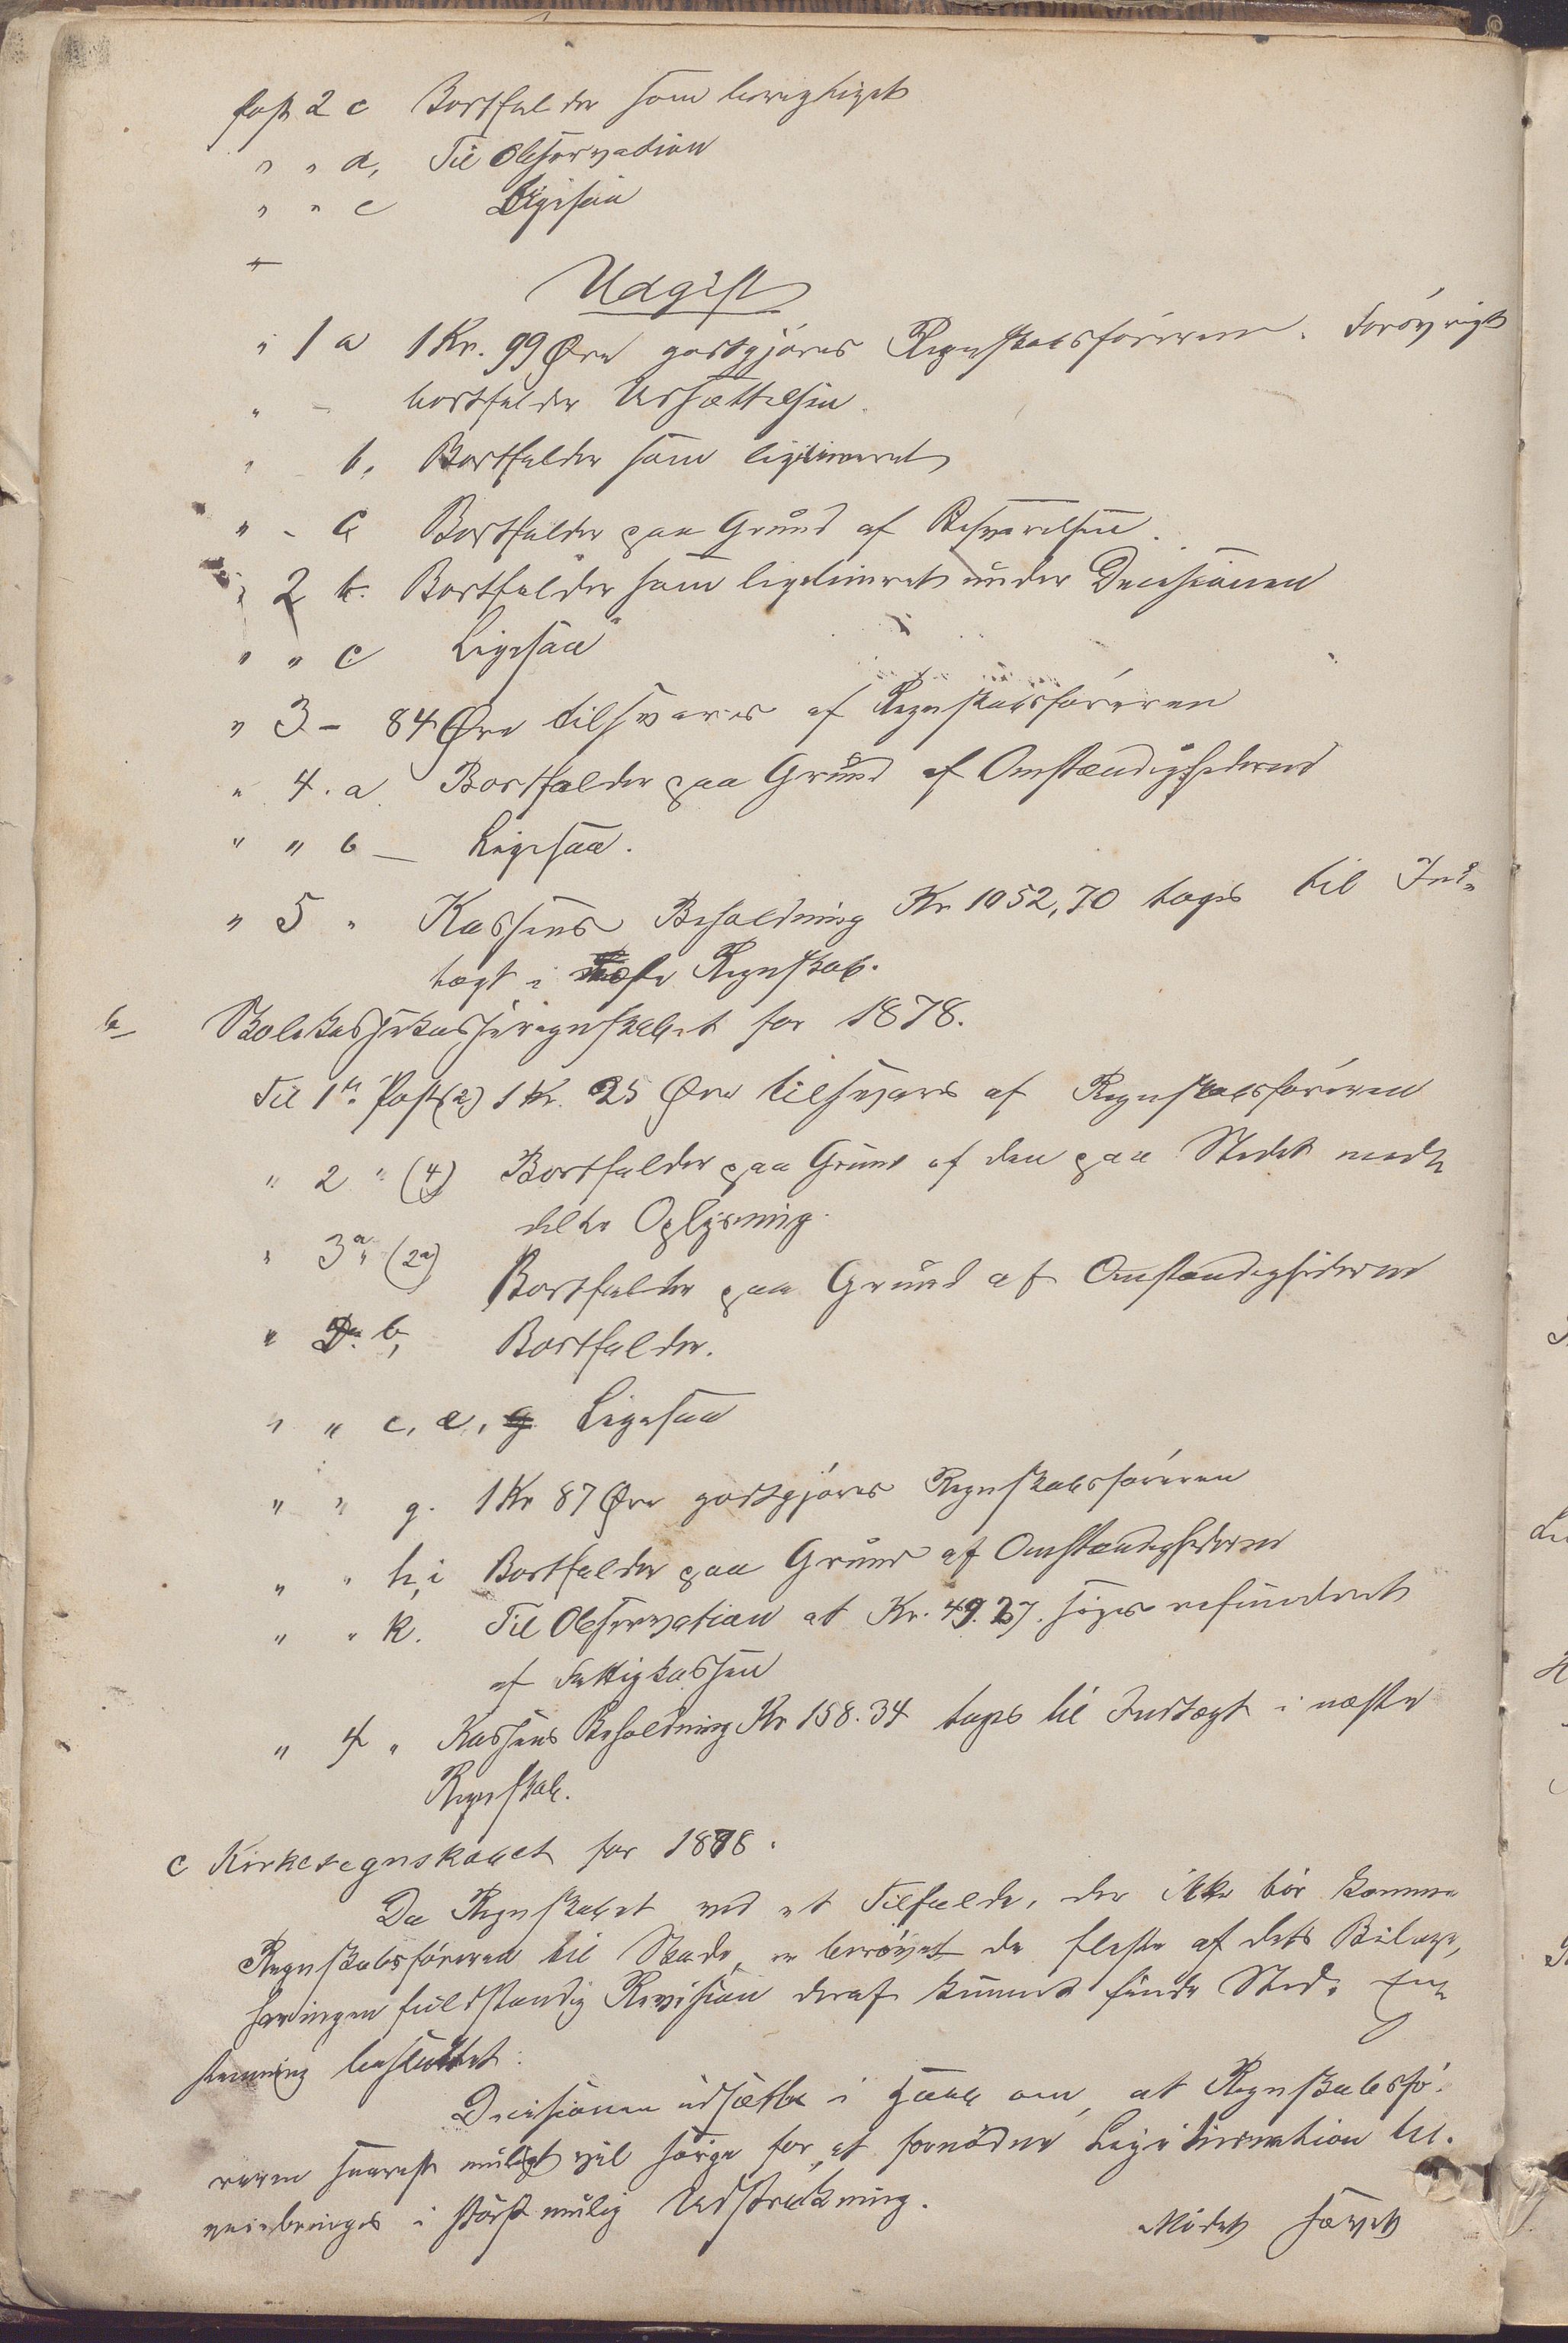 Post 2 c Bortfalder som berigtiget
" " d, Til Observation
" " e Ligesaa
Udgift
" 1 a 1 Kr. 99 Øre godtgjøres Regnskabsføreren. Forøvrigt
" - bortfalder Udsættelsen.
" - b, Bortfalder som legitimeret
" - c Bortfalder paa Grund af Besvarelsen.
" 2 b. Bortfalder som legitimeret under Decisionen
" " c Ligesaa
" 3 - 84 Øre tilsvares af Regnskabsføreren
" 4. a Bortfalder paa Grund af Omstændighederne
" " b - Ligesaa.
" 5 " Kassens Beholdning Kr 1052,70 tages til Ind-
tægt i næste Regnskab.
b Skolekassekasseregnskabet for 1878.
Til 1ste Post (2) 1 Kr. 25 Øre tilsvares af Regnskabsføreren
" 2 " (4) Bortfalder paa Grund af den paa Stedet med-
delte Oplysning.
" 3 a " (2a) Bortfalder paa Grund af Omstændighederne
" Do b, Bortfalder.
" " c, e, g Ligesaa
" " g. 1 Kr 87 Øre godtgjøres Regnskabsføreren
" " h, i Bortfalder paa Grund af Omstændighederne
" " k. Til Observation at Kr. 49.27. søges refunderet
af Fattigkassen
" 4 " Kassens Beholdning Kr 158.34 tages til Indtægt i næste
Regnskab.
c Kirkeregnskabet for 1878.
Da Regnskabet ved et Tilfælde, der ikke bør komme
Regnskabsføreren til Skade, er berøvet de fleste af dets Bilage,
har ingen fuldstændig Revision deraf kunnet finde Sted. Een-
stemmig besluttet:
Decisionen udsættes i Haab om, at Regnskabsfø-
reren snarest muligt vil sørge for, at fornøden Legitimation til-
veiebringes i størst mulig Udstrækning.
Mødet hævet